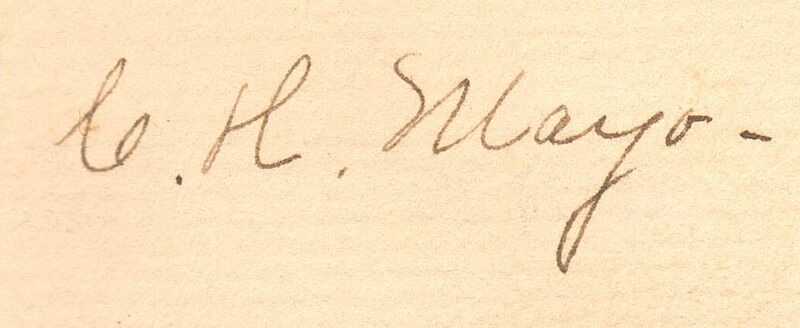 C. H. Mayo-